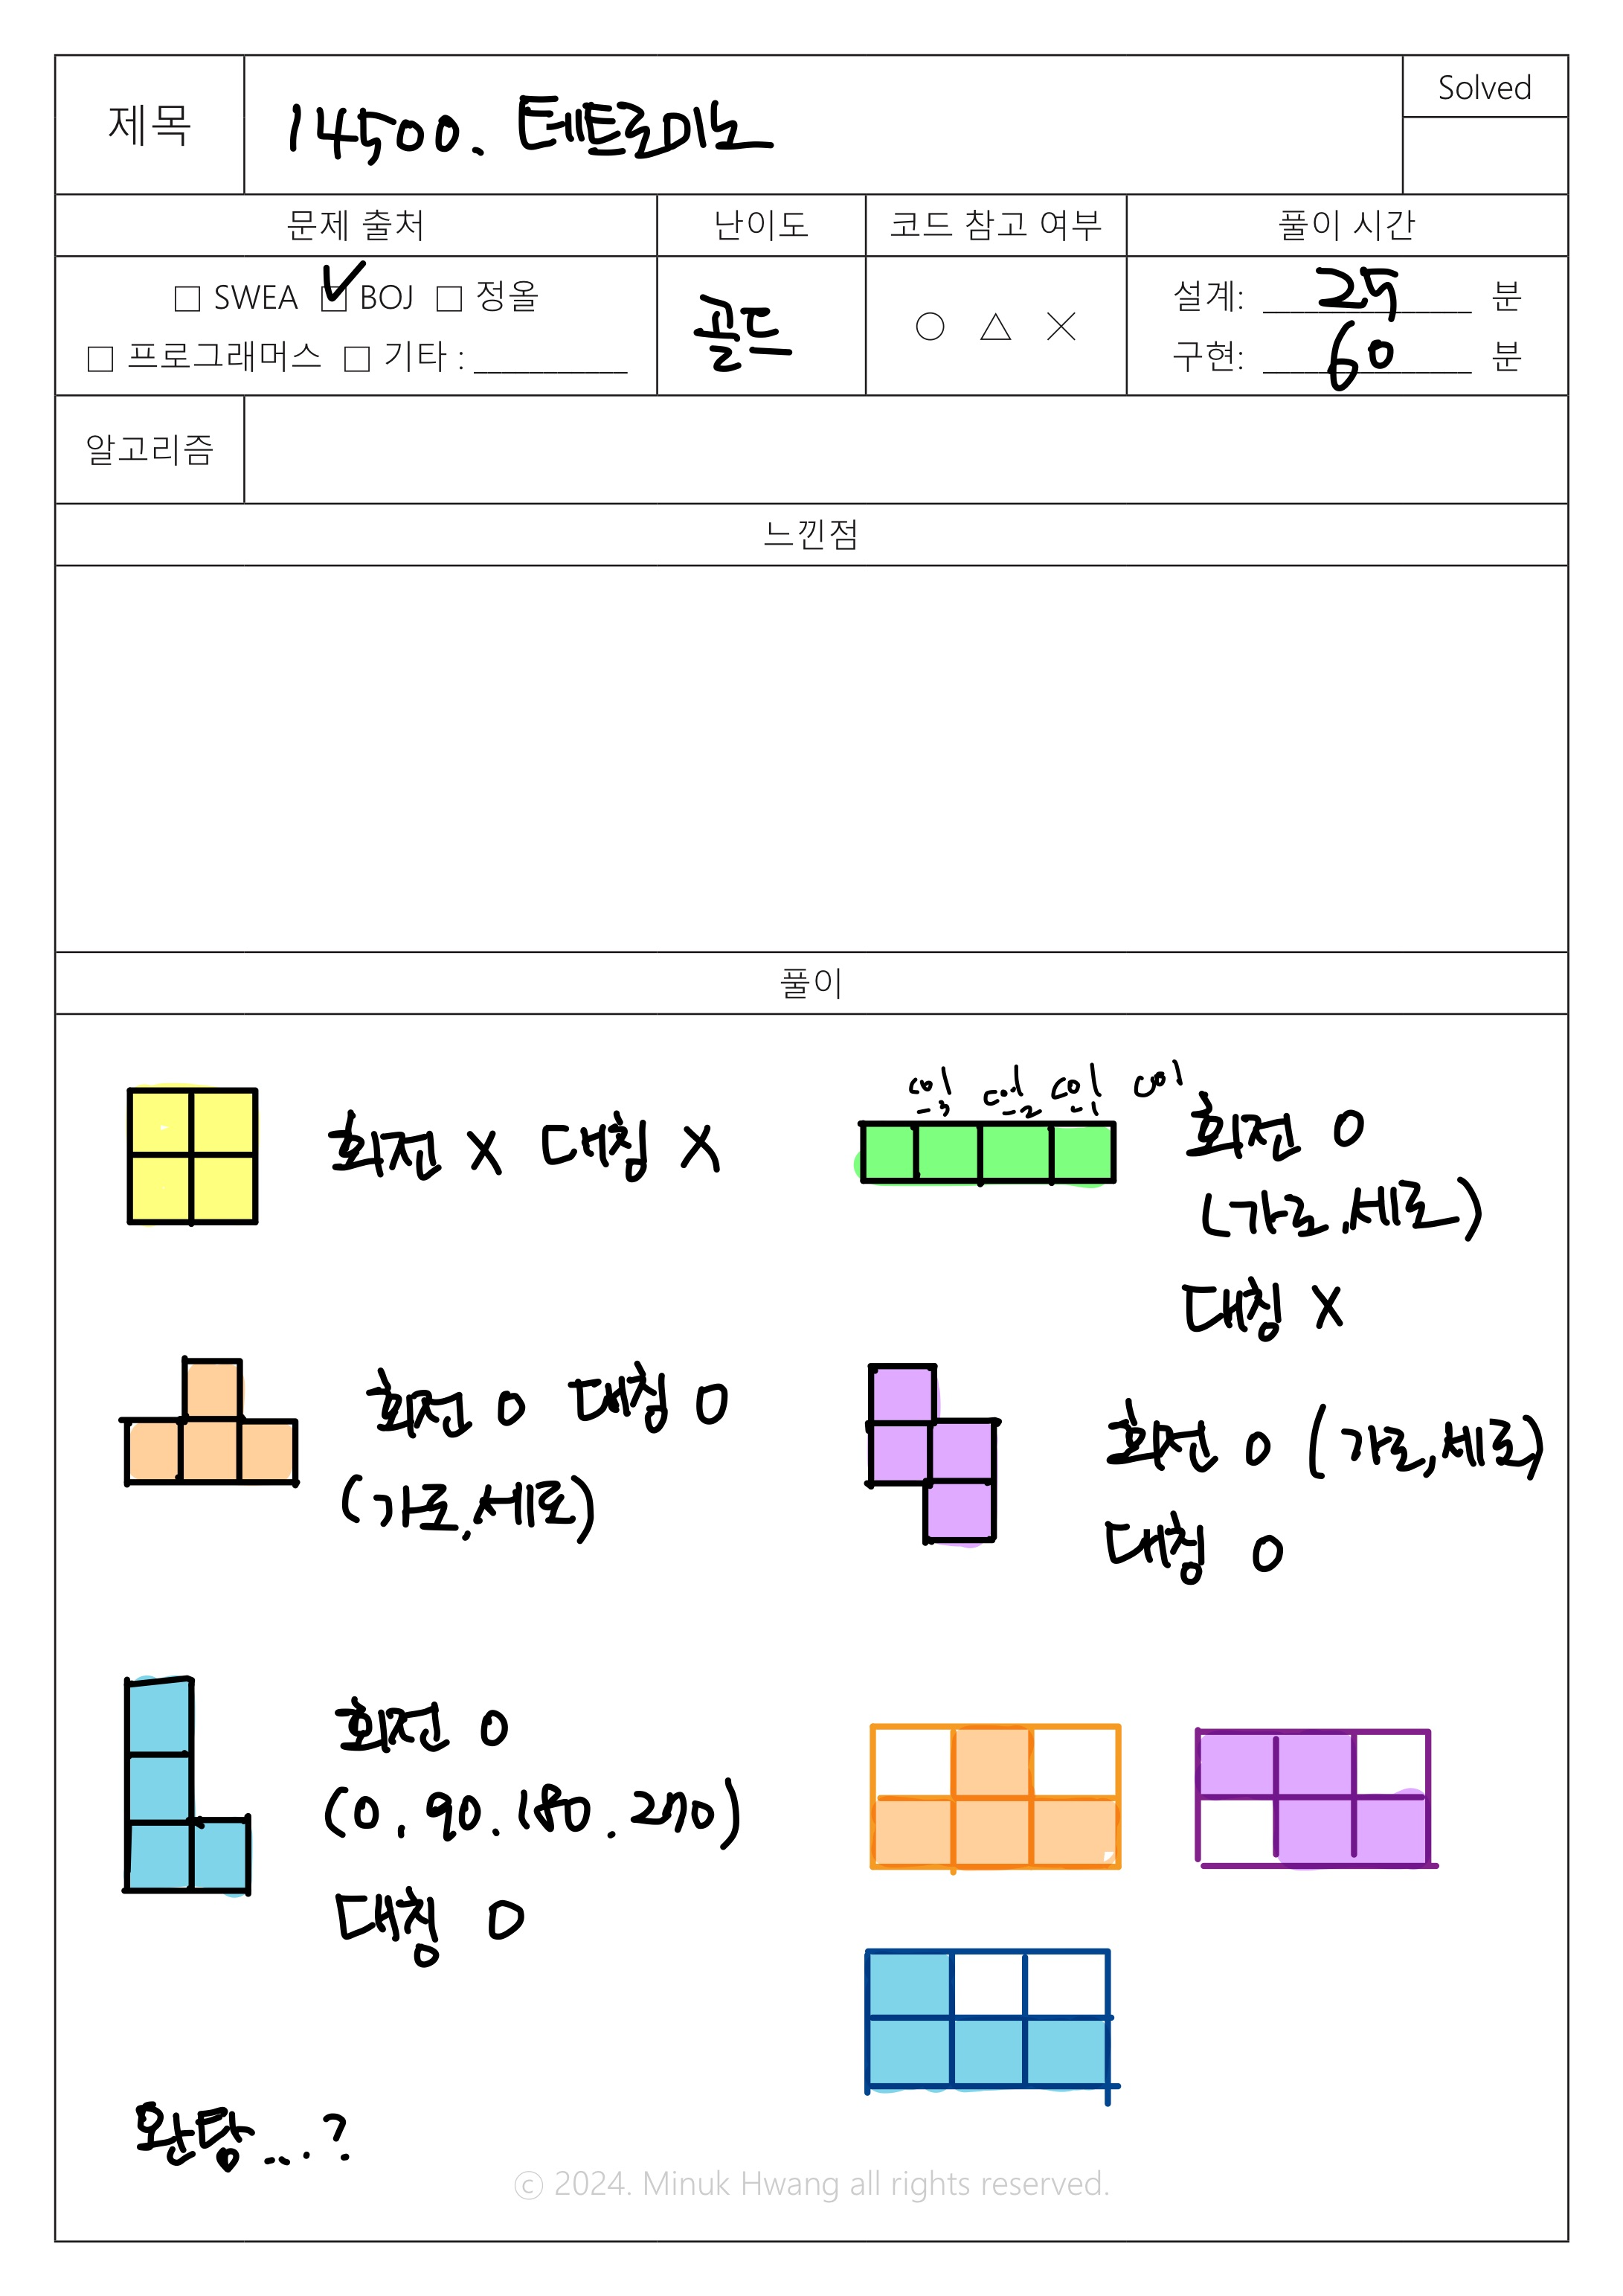 제목 14500. 테트로미노 Solved
문제 출처 난이도 코드 참고 여부 풀이 시간
□ SWEA ☑ BOJ □ 정올
□ 프로그래머스 □ 기타 : __________
골드
○ △ ×
설계: 25 분
구현: 60 분
알고리즘
느낀점
풀이
회전 X 대칭 X
-3 -2 -1
회전 O
(가로, 세로)
대칭 X
회전 O 대칭 O
(가로, 세로)
회전 O (가로, 세로)
대칭 O
회전 O
(0. 90. 180. 270)
대칭 O
완탐...?
© 2024. Minuk Hwang all rights reserved.